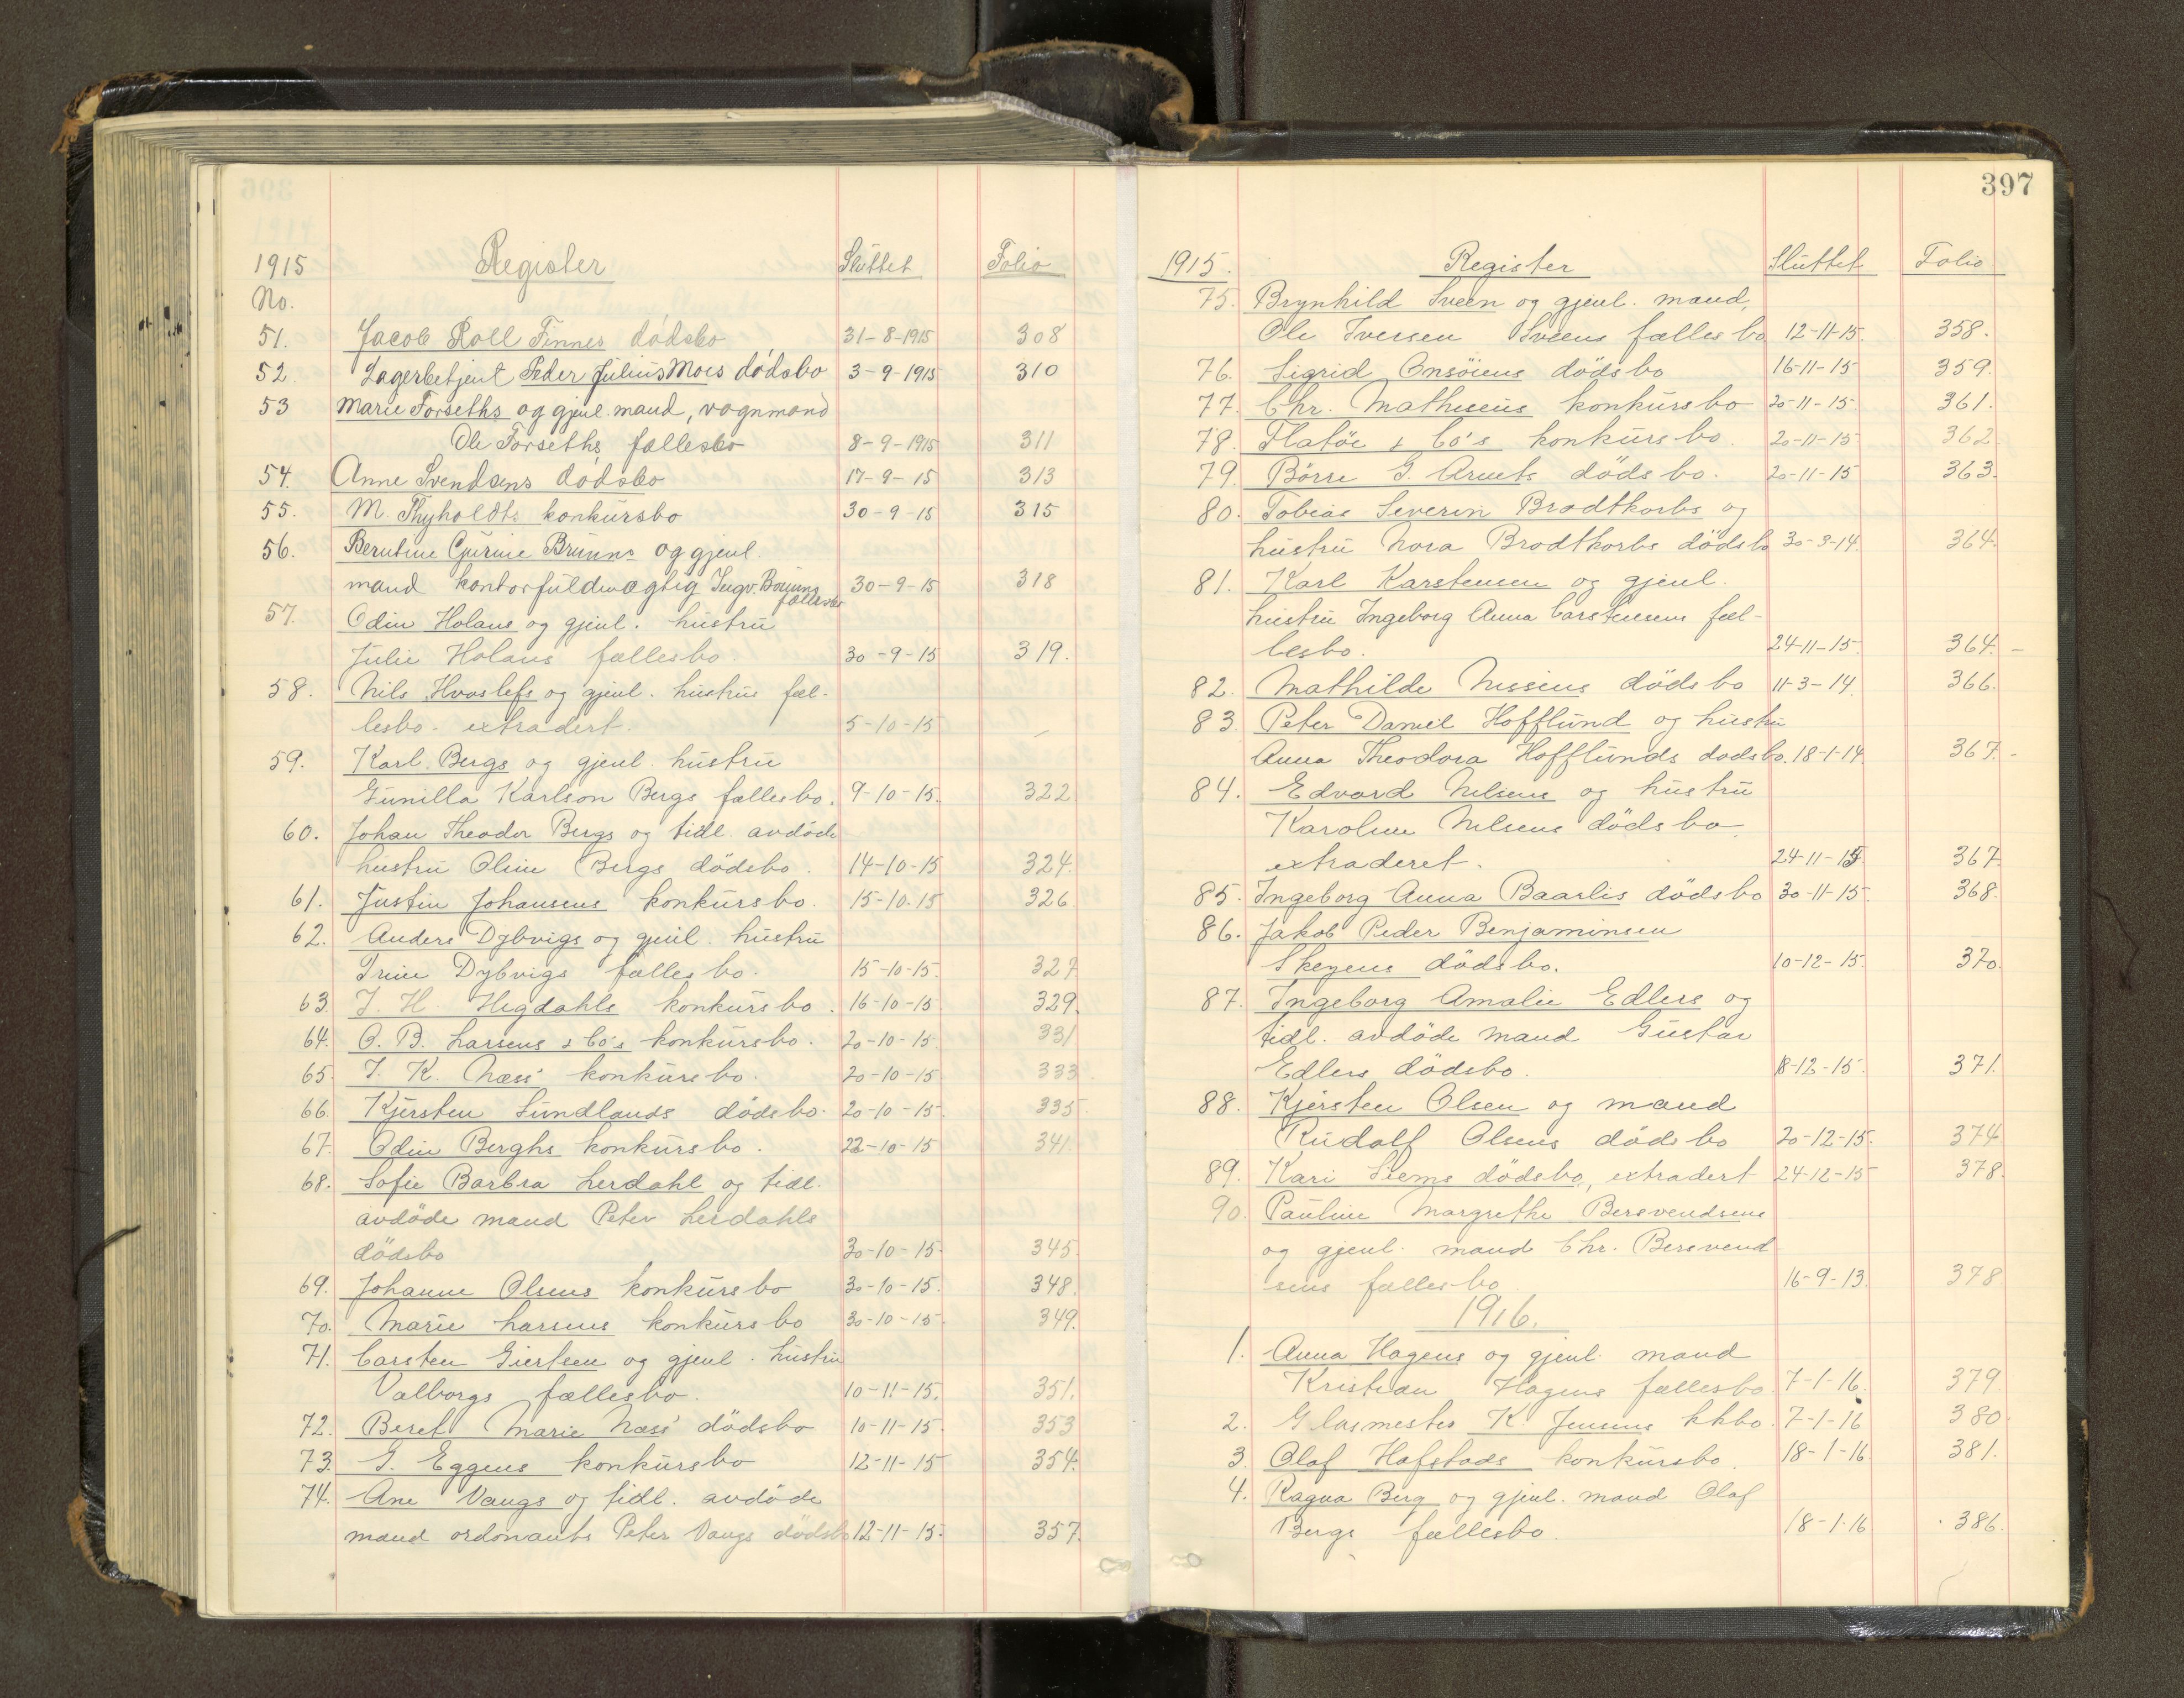 1915 Register Sluttet Folio
No.
51. Jacob Roll Finnes dødsbo 31-8-1915 308
52. Lagerbetjent Peder Julius Moes dødsbo 3-9-1915 310
53 Marie Forseths og gjenl. mand, vognmand
Ole Forseths fællesbo 8-9-1915 311
54. Anne Svendsens dødsbo 17-9-15 313
55. M. Thyholdts konkursbo 30-9-15 315
56. Berntine Gurine Bruuns og gjenl.
mand kontorfuldmægtig Ingv. Bruuns fællesbo 30-9-15 318
57. Odin Holans og gjenl. hustru
Julie Holans fællesbo. 30-9-15 319.
58. Nils Hvoslefs og gjenl. hustrus fæl-
lesbo. extradert. 5-10-15 -
59. Karl Bergs og gjenl. hustru
Gunilla Karlson Bergs fællesbo. 9-10-15. 322
60. Johan Theodor Bergs og tidl. avdöde
hustru Oline Bergs dödsbo. 14-10-15 324.
61. Justin Johansens konkursbo. 15-10-15 326
62. Anders Dybvigs og gjenl. hustru
Trine Dybvigs fællesbo. 15-10-15. 327
63. J. H. Hegdahls konkursbo. 16-10-15 329.
64. O. B. Larsens & Co's konkursbo. 20-10-15 331
65. J. K. Næss' konkursbo. 20-10-15 333
66. Kjersten Sundlands dödsbo. 20-10-15. 335
67. Odin Berghs konkursbo. 22-10-15 341.
68. Sofie Barbra Lerdahl og tidl.
avdöde mand Peter Lerdahls
dödsbo 30-10-15. 345.
69. Johanne Olsens konkursbo 30-10-15. 348.
70. Marie Larsens konkursbo 30-10-15. 349.
71. Carsten Giertsen og gjenl. hustru
Valborgs fællesbo. 10-11-15. 351.
72. Beret Marie Næss' dödsbo 10-11-15. 353
73. G. Eggens konkursbo 12-11-15 354.
74. Ane Vangs og tidl. avdöde
mand ordonants Peter Vangs dödsbo 12-11-15. 357.
397
1915. Register Sluttet Folio
75. Brynhild Sveen og gjenl. mand,
Ole Iversen Sveens fællesbo 12-11-15. 358.
76. Sigrid Onsöiens dödsbo 16-11-15 359.
77. Chr. Mathisens konkursbo 20-11-15. 361.
78. Flatöe & Co's konkursbo. 20-11-15 362
79. Börre G. Arnets dödsbo. 20-11-15 363.
80. Tobias Severin Brodtkorbs og
hustru Nora Brodtkorbs dödsbo 30-3-14. 364.
81. Karl Karstensen og gjenl.
hustru Ingeborg Anna Carstensens fæl-
lesbo. 24-11-15. 364. -
82. Mathilde Nissens dödsbo 11-3-14. 366.
83. Peter Daniel Hofflund og hustru
Anna Theodora Hofflunds dödsbo. 18-1-14. 367. -
84. Edvard Nilsens og hustru
Karoline Nilsens dödsbo
extraderet. 24-11-15. 367.
85. Ingeborg Anna Baarlis dödsbo 30-11-15. 368.
86. Jakob Peder Benjaminsen
Skeyens dödsbo. 10-12-15. 370.
87. Ingeborg Amalie Edlers og
tidl. avdöde mand Gustav
Edlers dödsbo. 18-12-15. 371.
88. Kjersten Olsen og mand
Rudolf Olsens dödsbo 20-12-15. 374
89. Kari Seems dödsbo, extradert 24-12-15 378.
90. Pauline Margrethe Bersvendsens
og gjenl. mand Chr. Bersvend-
sens fællesbo 16-9-13. 378
1916.
1. Anna Hagens og gjenl. mand
Kristian Hagens fællesbo. 7-1-16. 379.
2. Glasmester K. Jensens kkbo. 7-1-16 380.
3. Olaf Hafstads konkursbo. 18-1-16 381.
4. Ragna Berg og gjenl. mand Olaf
Bergs fællesbo. 18-1-16 386.